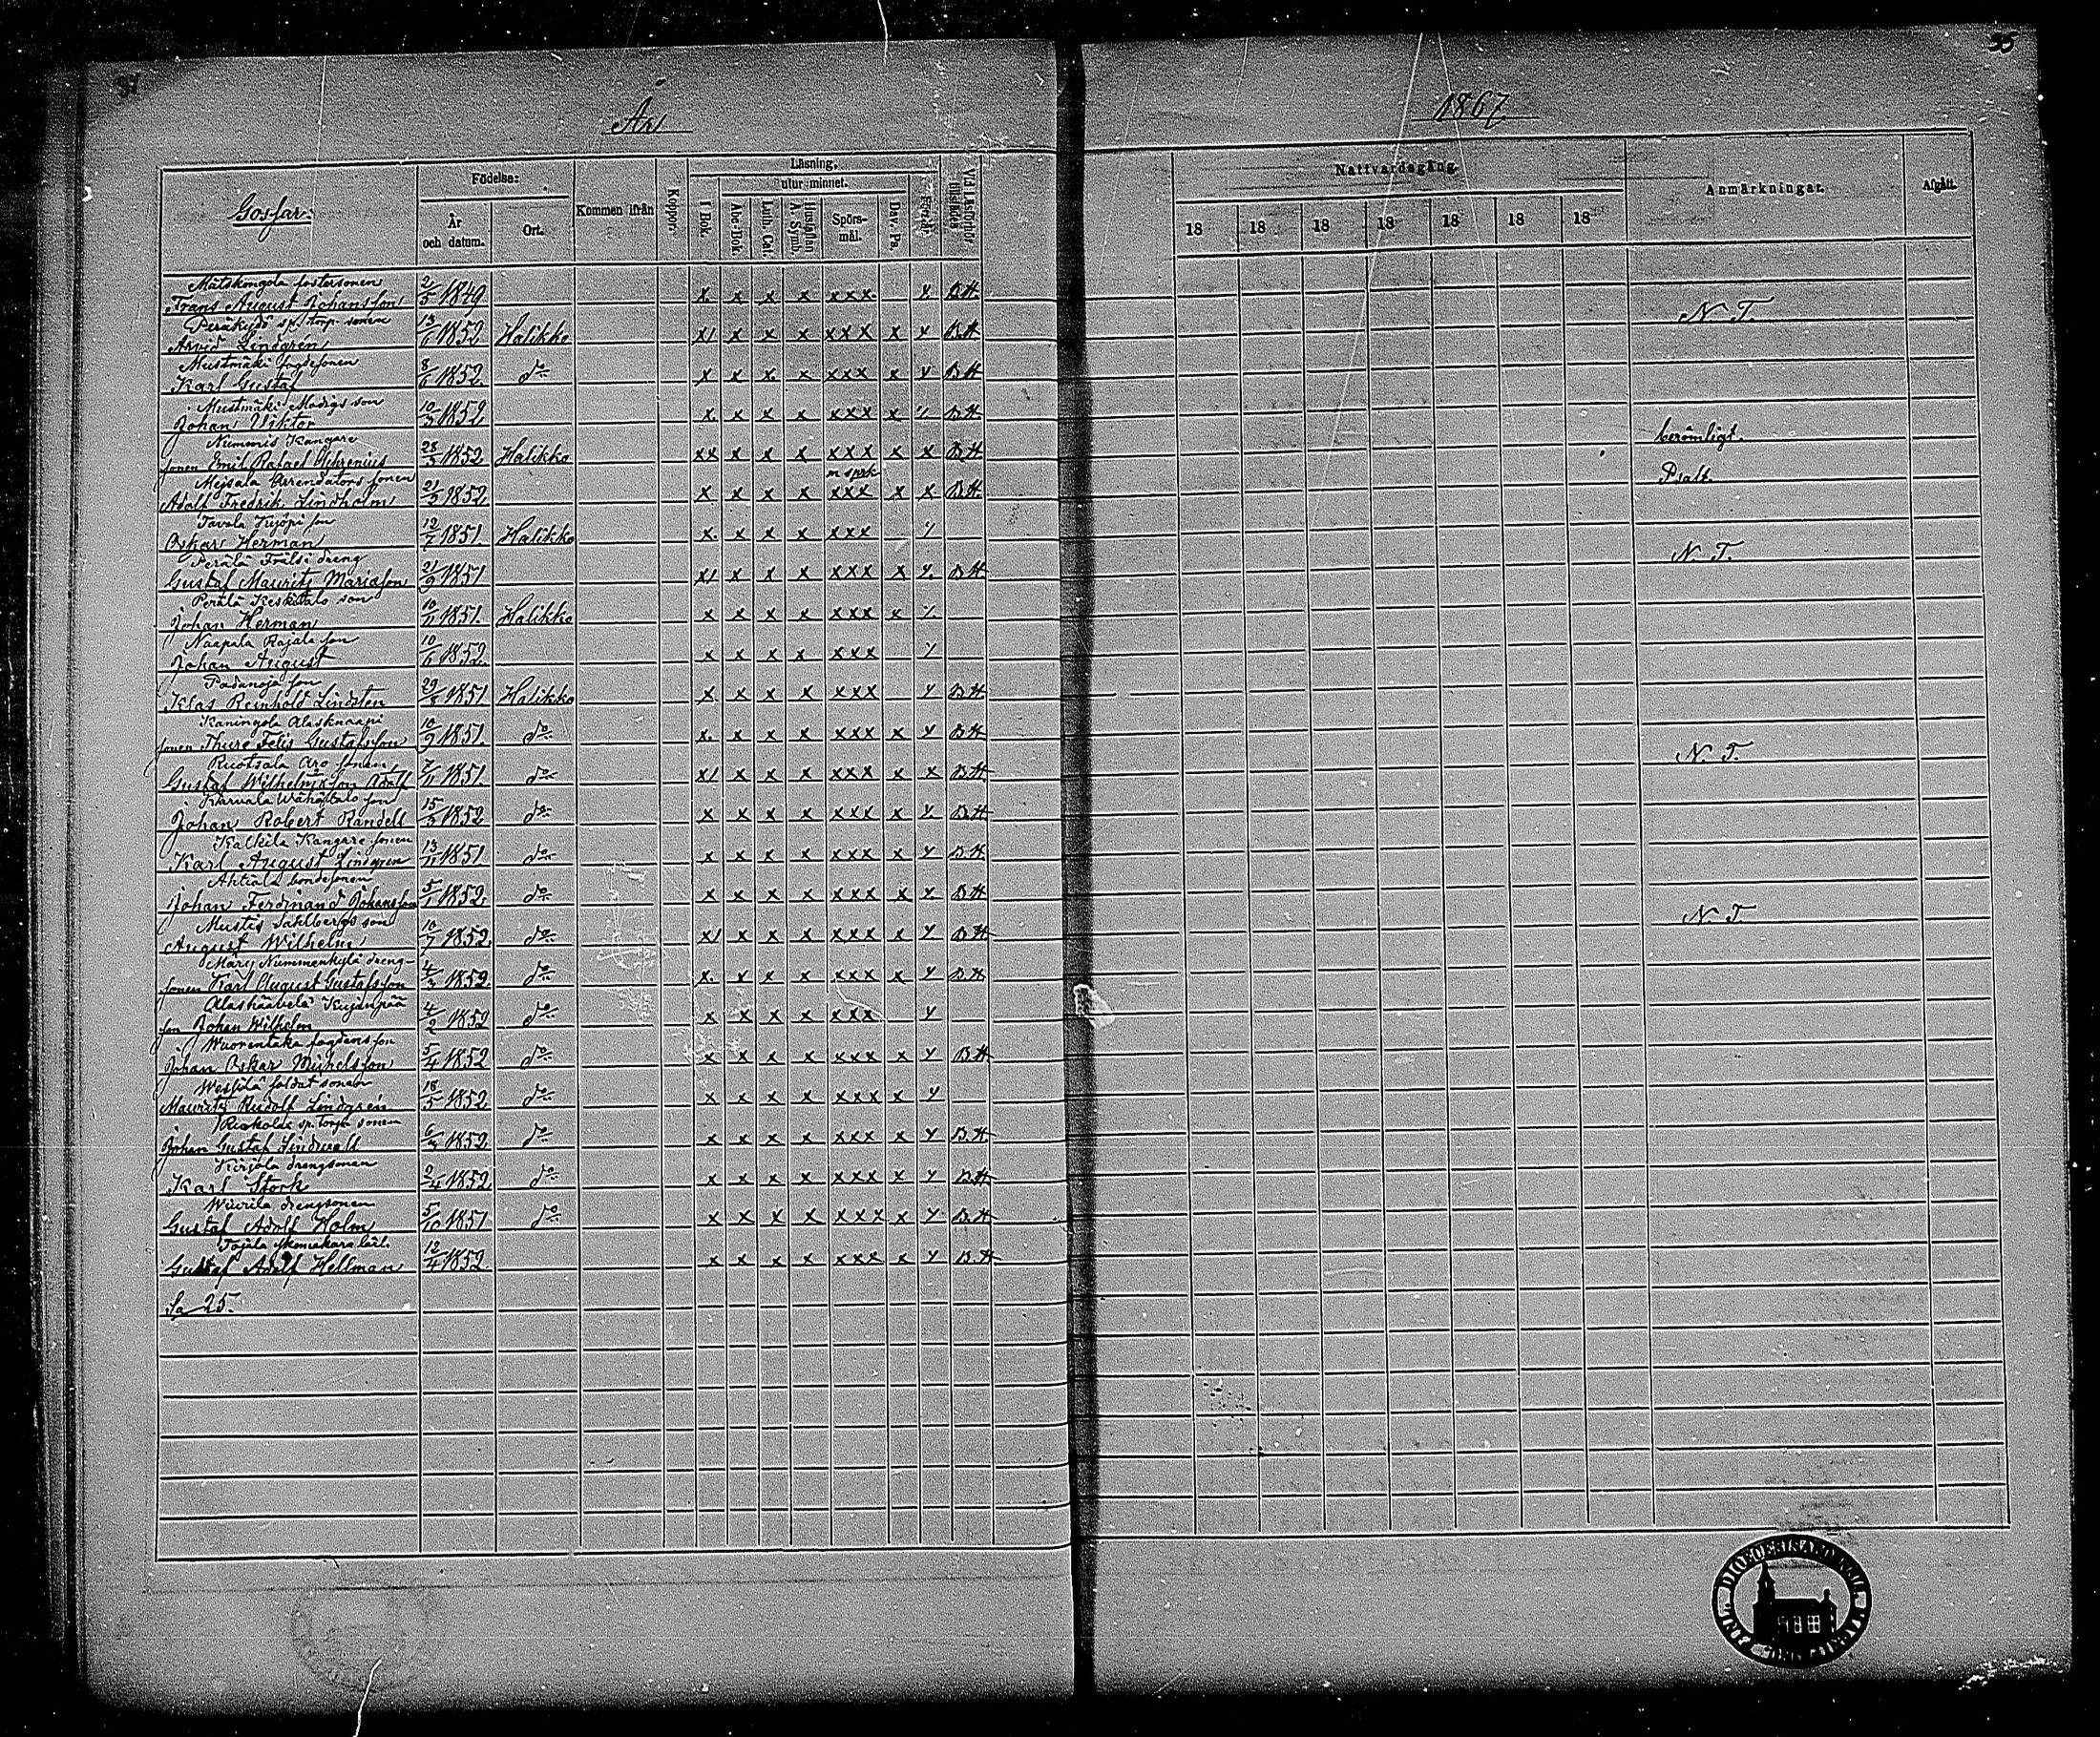 34
35
År
1867
Gossar:
Födelse:
År och datum.
Ort.
Kommen ifrån
Koppor.
Läsning,
utur minnet.
I Bok.
Abc-Bok.
Luth. Cat.
Hustaflan A. Symb.
Spörs-mål.
Dav. Ps.
Förstånd
Vid Läsförhör tillstädes
Nattvardsgång.
18 18 18 18 18 18 18
Anmärkningar.
Afgått.
fostersonen
Frans August Johansson 2/5 1849 x. x x x xxx. x B.H.
Peräkylä sp. torp. sonen N. T.
Arvid Lindgren 13/6 1852 Halikko x/ x x x xxx x x B.H.
Mustmäki fogdesonen
Karl Gustaf 8/6 1852. do x x x. x xxx x x B.H.
Mustmäki Modigs son
Johan Viktor 10/3 1852 x. x x x xxx x B.H.
Nummis Kangare berömligt.
sonen Emil Rafael 28/3 1852 Halikko xx x x x xxx x x B.H.
Mejsala Arrendators sonen Psalt.
Adolf Fredrik Lindholm 21/5 1852 x x x x xxx x x B.H.
Tavola son
Oskar Herman 12/7 1851. Halikko x. x x x xxx
Perälä dreng N. T.
Gustaf Mauritz Mariæson 21/9 1851 x/ x x x xxx x x. B.H.
Perälä Keskitalo son
Johan Herman 10/11 1851. Halikko x x x x xxx x
Naapala Rajala son
Johan August 10/6 1852. x x x x xxx x
Padanoja son
Klas Reinhold Lindsten 29/8 1851 Halikko x x x x xxx x B.H.
Kaningola Alasknaapi
sonen Thure Felix Gustafsson 10/9 1851. do x. x x x xxx x x B.H.
Ruotsala Aro sonen N. T.
Gustaf Wilhelmsson Adolf 7/11 1851. do x/ x x x xxx x x B.H.
Karvala Wähätalo son
Johan Robert Randell 15/3 1852 do x x x x xxx x x B.H.
Kalkila Kangare sonen
Karl August Lindgren 13/11 1851 do x x x x xxx x x B.H.
Ahtiala bondesonen
Johan Ferdinand Johansson 5/1 1852. do x x x x xxx x x. B.H.
Mustis Sahlbergs son N. T.
August Wilhelm 10/7 1852. do x/ x x x xxx x x B.H.
Märy Nummenkylä dreng-
sonen Karl August Gustafsson 4/3 1852. do x. x x x xxx x x B.H.
Alaskäävelä Kujanpää
son Johan Wilhelm 4/2 1852 do x x x x xxx x
Wuorentaka fogdens son
Johan Oskar Michelsson 5/4 1852 do x x x x xxx x x B.H.
soldat sonen
Mauritz Rudolf Lindgren 18/5 1852 do x x x x xxx x x
sp. torp. sonen
Johan Gustaf Lindwall 6/3 1852 do x x x x xxx x x B.H.
Kirjola drengsonen
Karl Stork 2/4 1852 do x x x x xxx x x B.H.
Wiurila drengsonen
Gustaf Adolf Holm 5/10 1851 do x x x x xxx x x B.H.
Tojala skomakare lärl.
Gustaf Adolf Hellman 12/4 1852 x x x x xxx x x B.H.
Sa 25.